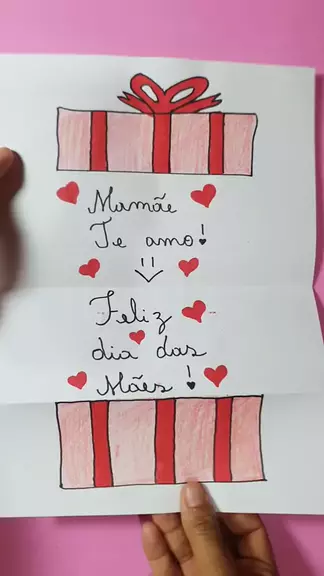 Mamãe
Te amo!
Feliz
dia das
Mães!